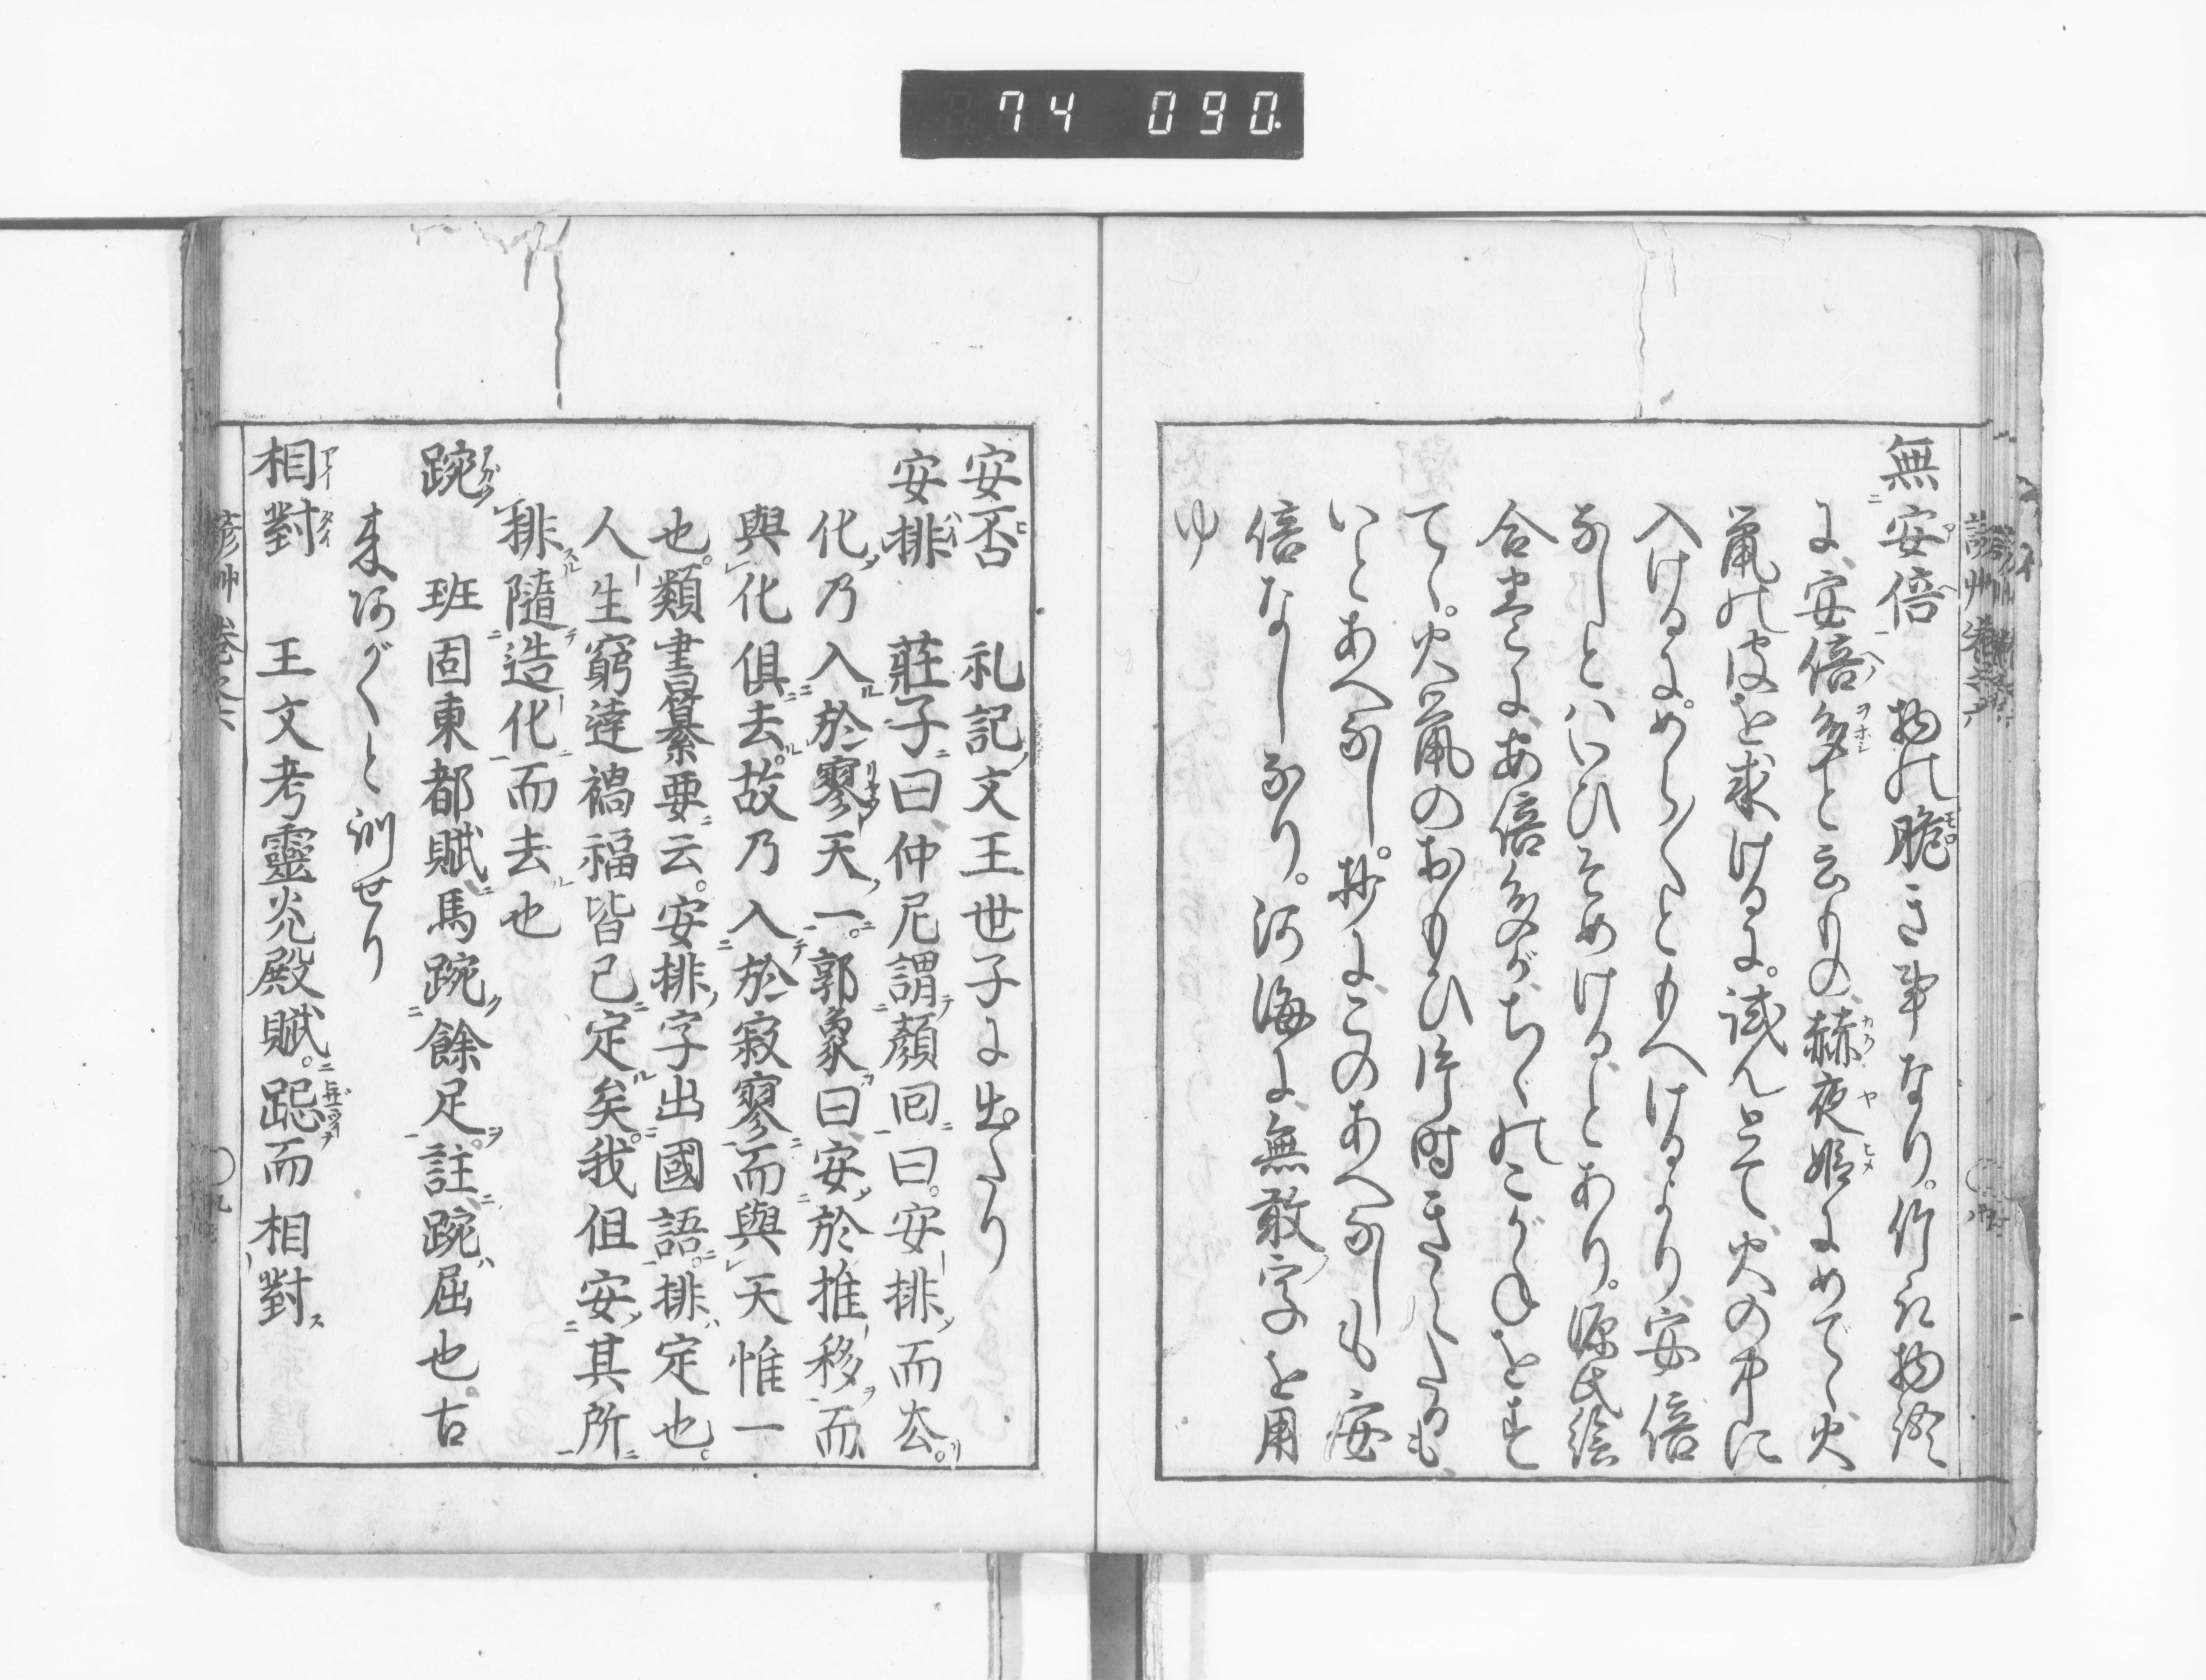 74 090.
無安倍 物の脆き事なり。竹取物語
に、安倍多と云もの、赫夜姫にめでゝ火
鼠の皮を求けるに。試んとて、火の中に
入けるに。めら〳〵ともへけるより、安倍
なしとはいひそめけるとあり。源氏絵
合巻に、あ倍多がちゞのこがねをす
てゝ。火鼠のおもひ片時きえたるも、
いとあへなし。抄に、このあへなしも安
倍なしなり。河海に、無敢字を用
ゆ
安否 礼記文王世子に出たり
安排 莊子曰仲尼謂顏回曰。安排而去。
化乃入於寥天一。郭象曰、安於推移而
與化俱去。故乃入於寂寥而與天惟一
也。類書纂要云。安排字出國語。排定也。
人生窮達禍福皆已定矣。我但安其所
排隨造化而去也
踠 班固東都賦馬踠餘足。註踠屈也。古
来阿がくと訓せり
相對 王文考靈光殿賦。跽而相對
諺艸 巻之六 〇九